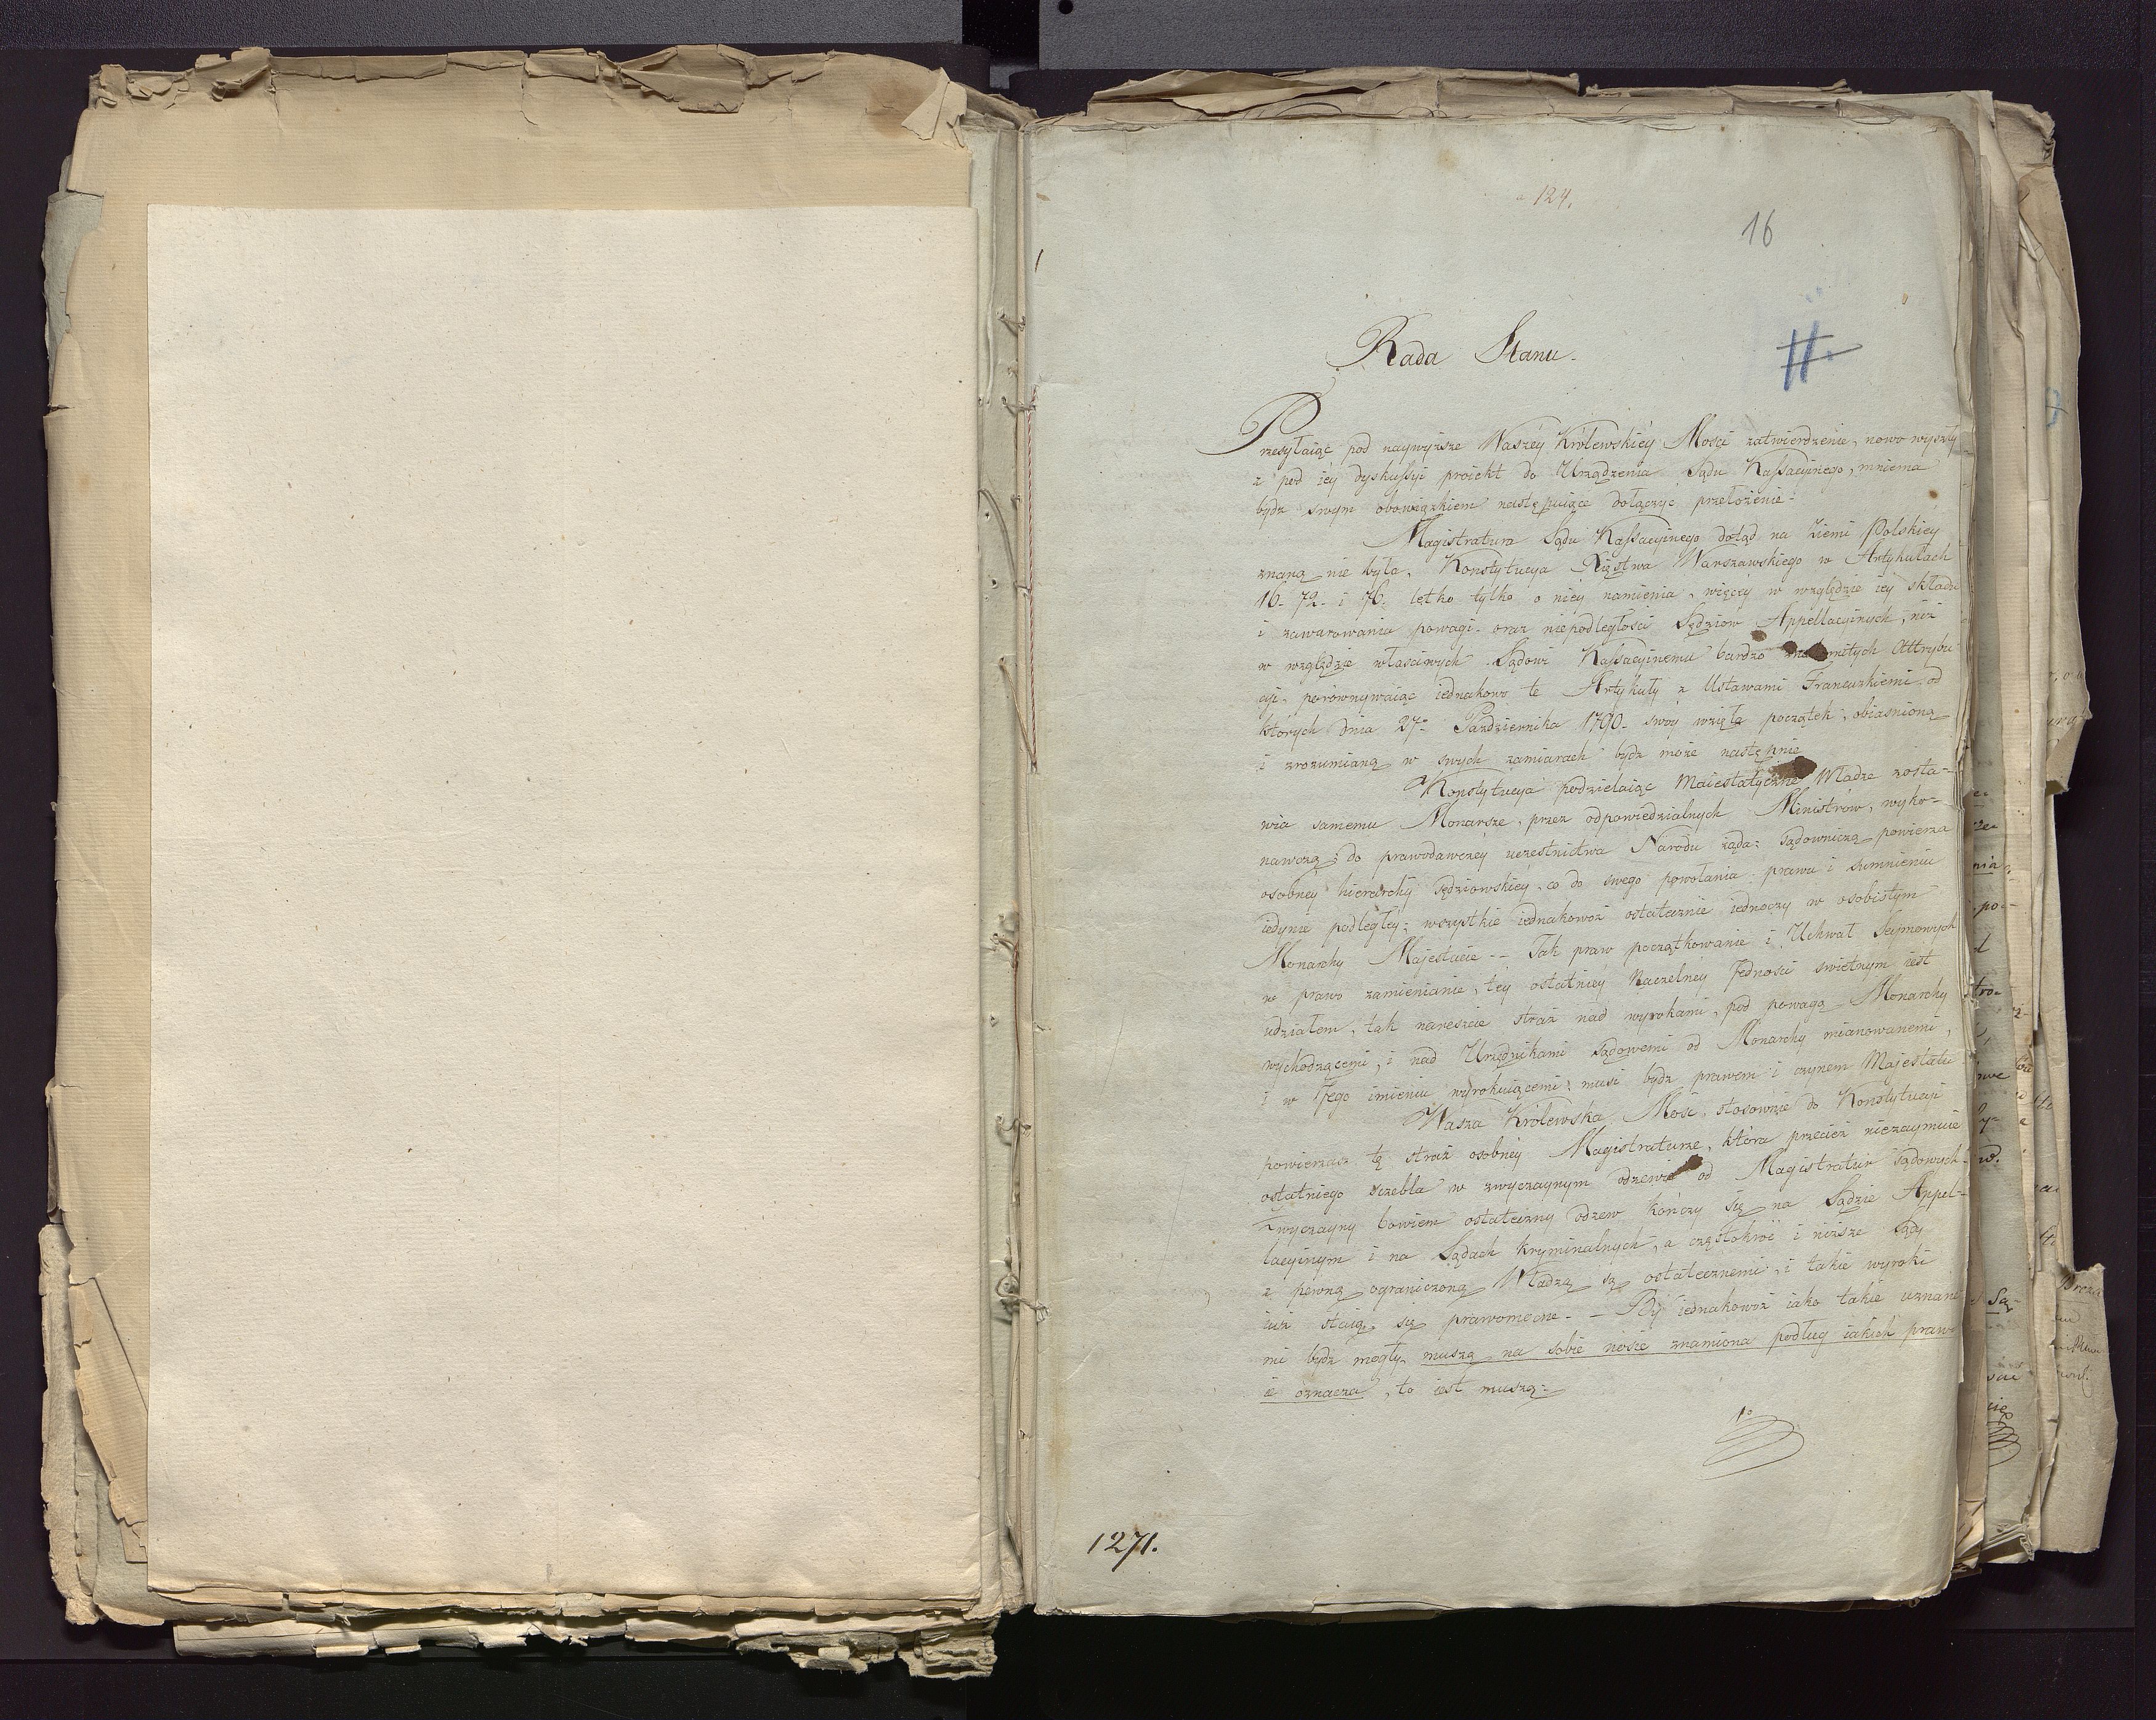 124.
16
Rada Stanu.
Przesyłaiąc pod naywyższe Waszéy Królewskiéy Mości zatwierdzenie, nowo wyszły
z pod iéy dyskussyi proiekt do Urządzenia Sądu Kassacyinego, mniema
bydź swym obowiązkiem następuiące dołączyć przełożenie.
Magistratura Sądu Kassacyinego dotąd na ziemi Polskiéy
znaną nie była. Konstytucya Xięstwa Warszawskiego w Artykułach
16. 72. i 76. letko tylko o niéy namienia, więcéy w względzie iéy składu
i zawarowania powagi oraz niepodległości Sędziów Appellacyinych, niż
w względzie właściwych Sądowi Kassacyinemu bardzo znakomitych Attrybu-
cji. porównywaiąc iednakowo te Artykuły z Ustawami Francuzkiemi od
których dnia 27. Października 1790. swóy wzięła początek, obiaśnioną
i zrozumianą w swych zamiarach bydź może następnie
Konstytucya podzielaiąc Maiestatyczne Władze zosta-
wia samemu Monarsze, przez odpowiedzialnych Ministrów, wyko-
nawczą; do prawodawczéy uczestnictwa Narodu żąda; sądowniczą powierza
osobnéy hierarchij sędziowskiéy, co do swego powołania prawu i sumnieniu
iedynie podległéy; wszystkie iednakowoż ostatecznie iednoczy w osobistym
Monarchy Majestacie -- Jak praw początkowanie i Uchwał Seymowych
w prawo zamienianie, téy ostatniéy Naczelnéy Jedności świetnym iest
udziałem, tak nareszcie straż nad wyrokami, pod powagą Monarchy
wychodzącemi, i nad Urzędnikami sądowemi od Monarchy mianowanemi,
i w Jego imieniu wyrokuiącemi; musi bydź prawem i czynem Majestatu
Wasza Królewska Mość, stosownie do Konstytucji
powierzasz tę straż osobnéy Magistraturze, która przecież niezaymuie
ostatniego szczebla w zwyczaynym odzewie od Magistratur sądowych.
Zwyczayny bowiem ostateczny odzew kończy się na Sądzie Appel-
lacyinym i na Sądach kryminalnych, a częstokroć i niższe sądy
z pewną ograniczoną Władzą są ostatecznemi, i takie wyroki
iuż staią się prawomocne. -- By iednakowoż iako takie uznane-
mi bydź mogły, muszą na sobie nosić znamiona podług iakich prawo
ie oznacza, to iest muszą:
1°
1271.